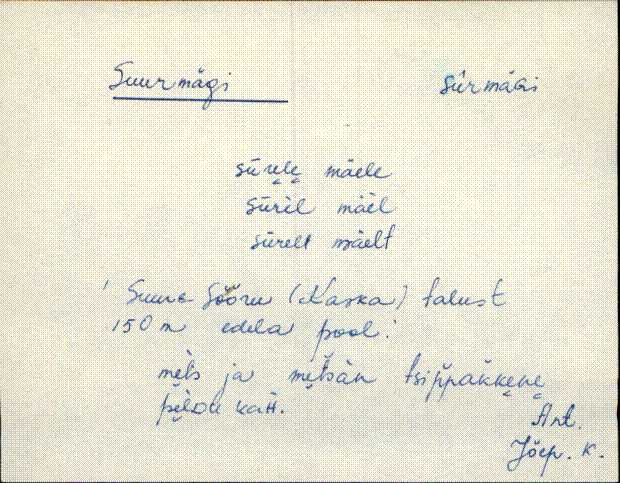 Suurmägi sūrmäGi
sūrele mäele
sūrèl mäèl
sūrelt mäelt
Suure Sõõru (Kaska) talust
150 m edela pool:
mèts ja mètsän tsippakkene
kah.
Ant.
Jõep. k.